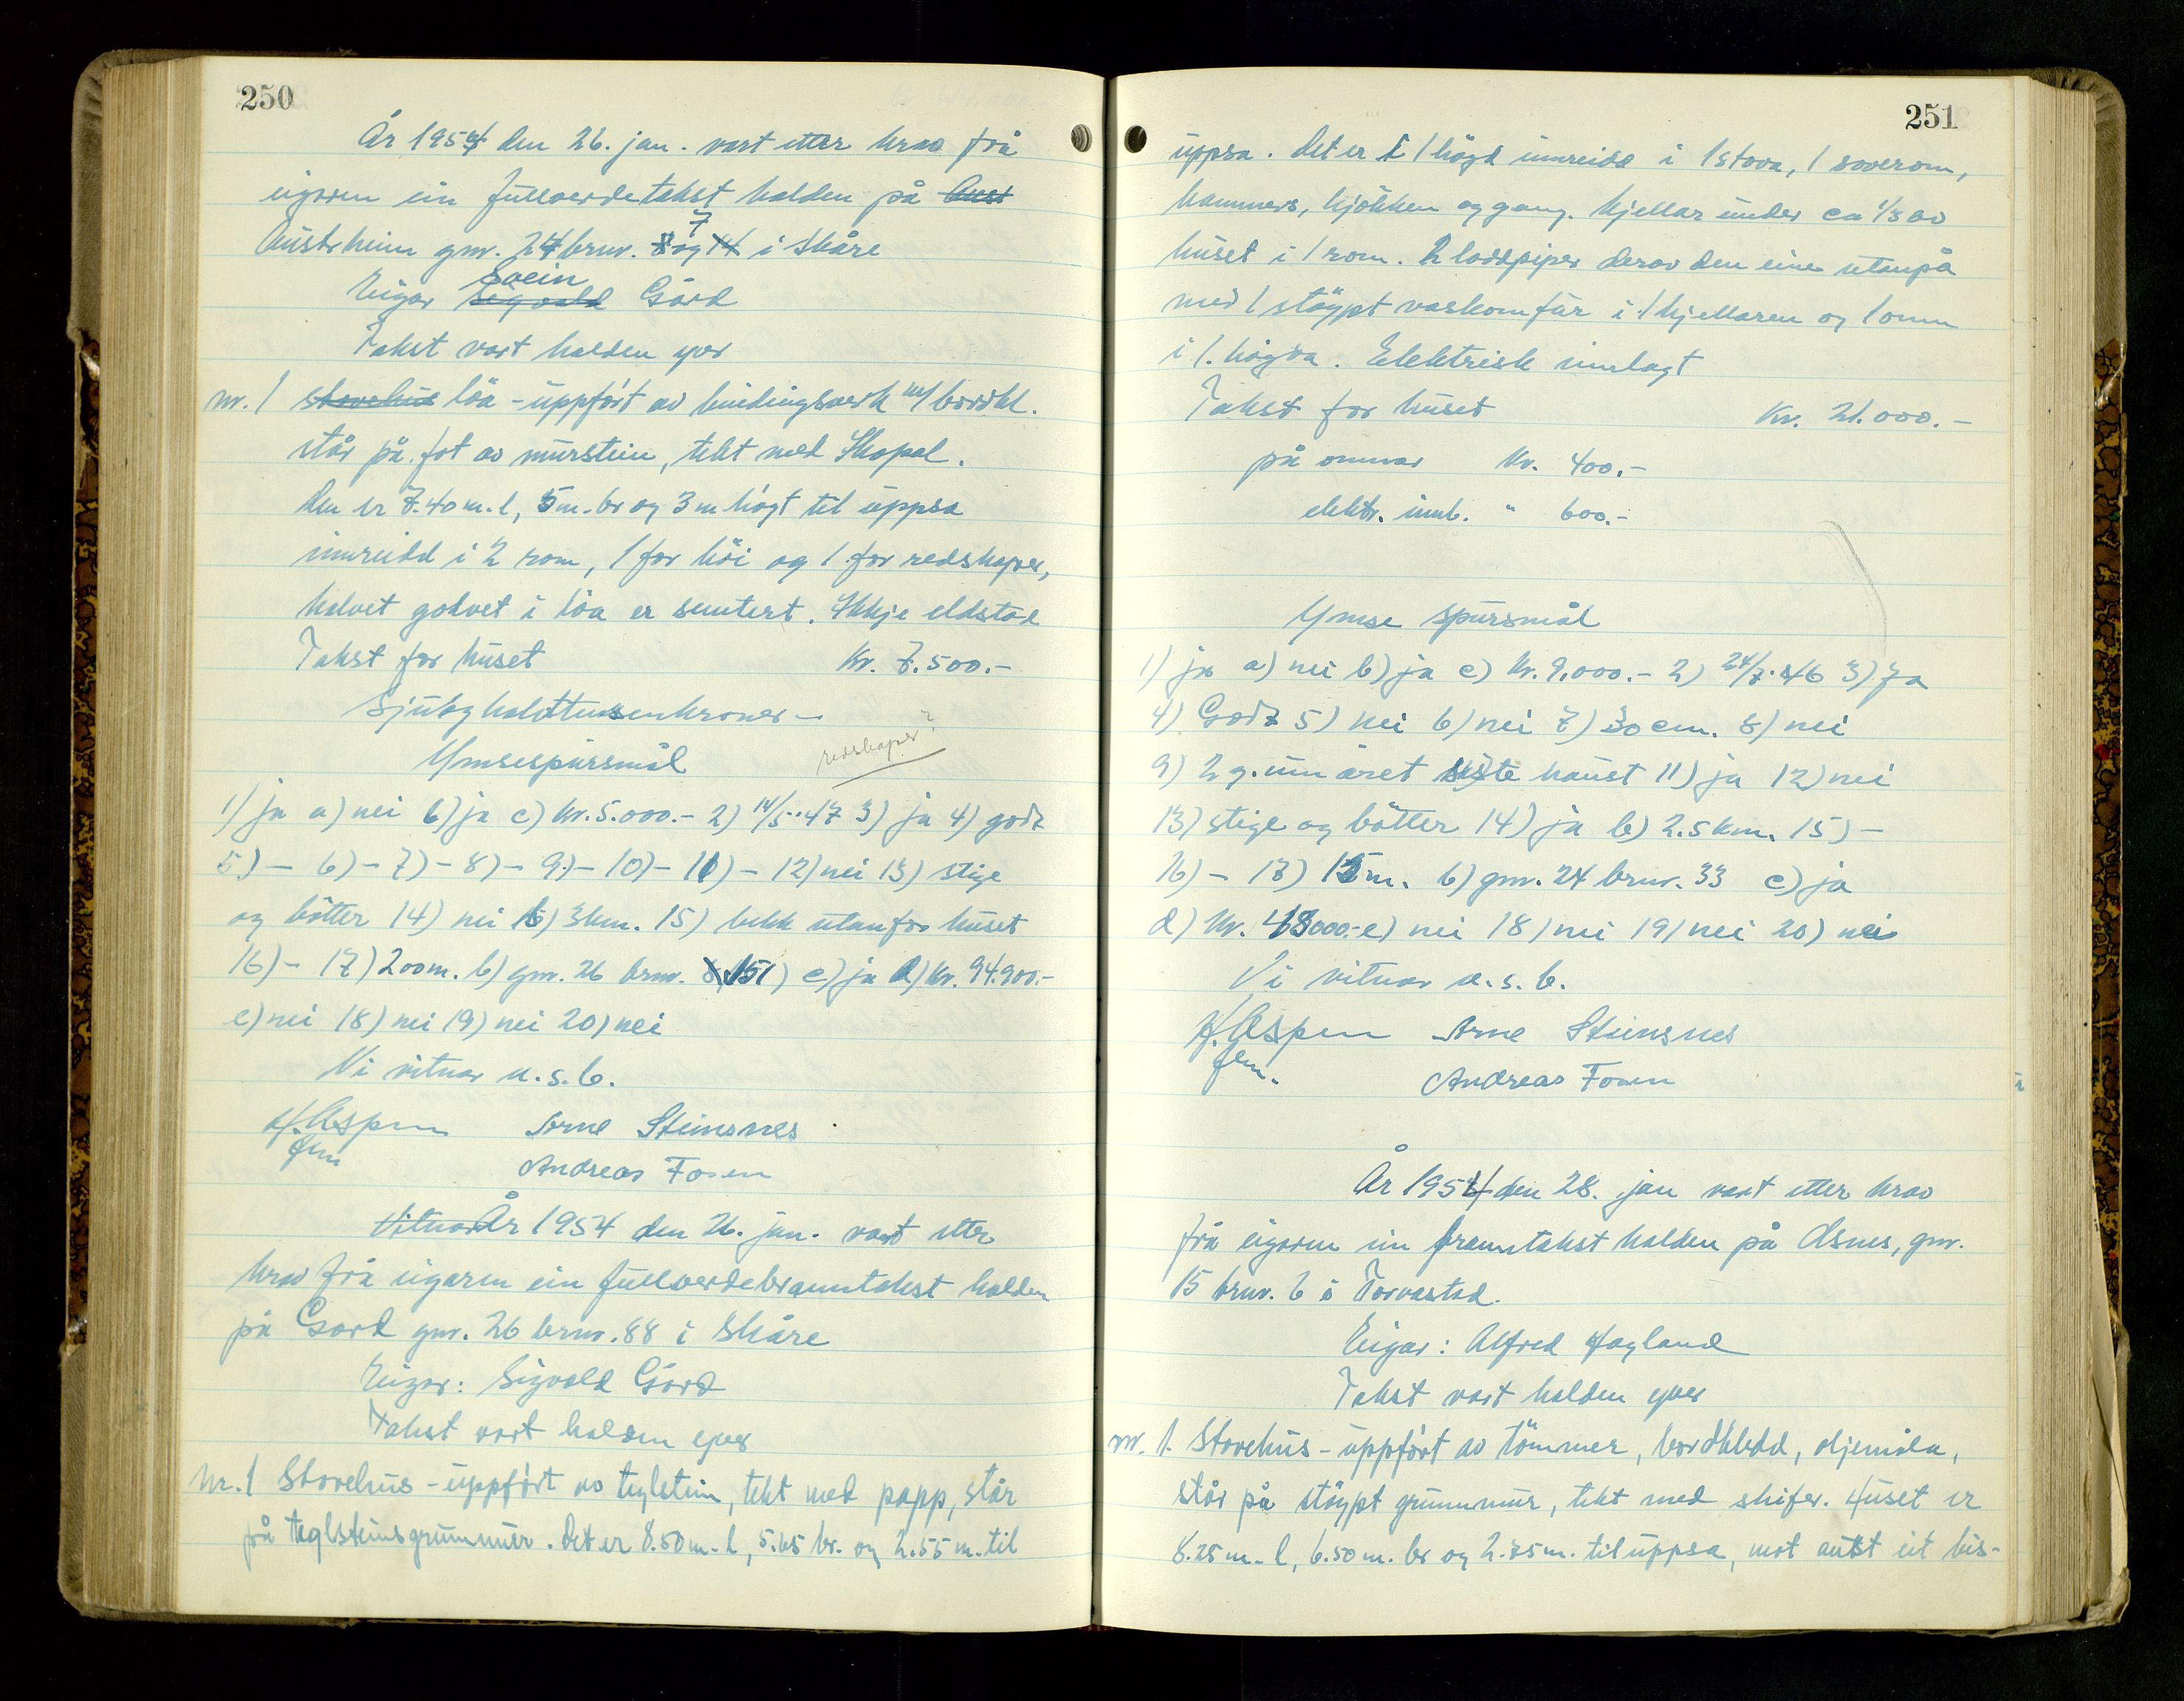 250
År 1954 den 26. jan. vart etter krav frå
eigaren ein fullverdetakst halden på Aust
Austrheim gnr. 24 brnr. 8 og 14 7 i Skåre
Eigar Sigvald Svein Gård
Takst vart halden yver
nr. 1 stovehus löa - uppfört av bindingsverk m/bordkl.
står på fot av murstein, tekt med Skopal.
Den er 7.40 m. l, 5 m. br og 3 m högt til uppsa
innreidd i 2 rom, 1 for höi og 1 for redskaper,
halvet golvet i löa er sementert. Ikkje eldstad
Takst for huset Kr. 7.500.-
Sjuoghalvttusenkroner -
redskaper?
Ymsespursmål
1) ja a) nei b) ja c) kr. 5.000.- 2) 14/5.-47 3) ja 4) godt
5) - 6) - 7) - 8) - 9) - 10) - 11) - 12) nei 13) stige
og bötter 14) nei b) 3 km. 15) bekk utanfor huset
16) - 17) 200 m. b) gnr. 26 brnr. 151) c) ja d) kr. 94.900.-
e) nei 18) nei 19) nei 20) nei
Vi vitnar u. s. b.
H. Aspen Arne Steinsnes
fem. Andreas Fosen
Vitnar År 1954 den 26. jan. vart etter
krav frå eigaren ein fullverdebranntakst halden
på Gard gnr. 26 brnr. 88 i Skåre
Eigar: Sigvald Gård
Takst vart halden yver
Nr. 1 Stovehus - uppfört av teglstein, tekt med papp, står
på teglsteinsgrunnmur. Det er 8.50 m. l, 5.65 br. og 2.55 m. til
251
uppsa. Det er i 1 högd innreidd i 1 stova, 1 soverom,
kammers, kjökken og gang. Kjellar under ca 1/3 av
huset i 1 rom. 2 loddpiper derav den eine utanpå
med 1 stöypt vaskomfur i 1 kjellaren og 1 omn
i 1. högda. Elektrisk innlagt
Takst for huset Kr. 21.000.-
på omnar Kr. 400.-
elektr. innl. " 600.-
Ymse spursmål
1) ja a) nei b) ja c) kr. 9.000.- 2) 24/7.-46 3) ja
4) Godt 5) nei 6) nei 7) 30 cm. 8) nei
9) 2 g. um året siste haust 11) ja 12) nei
13) stige og bötter 14) ja b) 2.5 km. 15) -
16) - 17) 15 m. b) gnr. 24 brnr. 33 c) ja
d) kr. 43000.- e) nei 18) nei 19) nei 20) nei
Vi vitnar u. s. b.
H. Aspen Arne Steinsnes
fem. Andreas Fosen
År 1954 den 28. jan vart etter krav
frå eigaren ein branntakst halden på Osnes, gnr.
15 brnr. 6 i Torvastad.
Eigar: Alfred Hagland
Takst vart halden yver
nr. 1. Stovehus - uppfört av tömmer, bordkledd, oljemåla,
står på stöypt grunnmur, tekt med skifer. Huset er
8.25 m. l, 6.50 m. br og 2.75 m. til uppsa, mot aust eit bis-